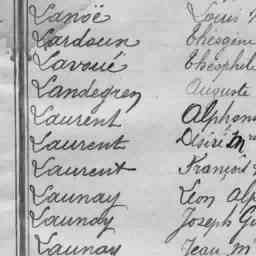 Lanoë Louis
Lardoux
Lavoué Théophile
Landegren Auguste
Laurent Alphons
Laurent Désiré
Laurent François
Launay Léon Alp
Launay Joseph Gu
Launay Jean M